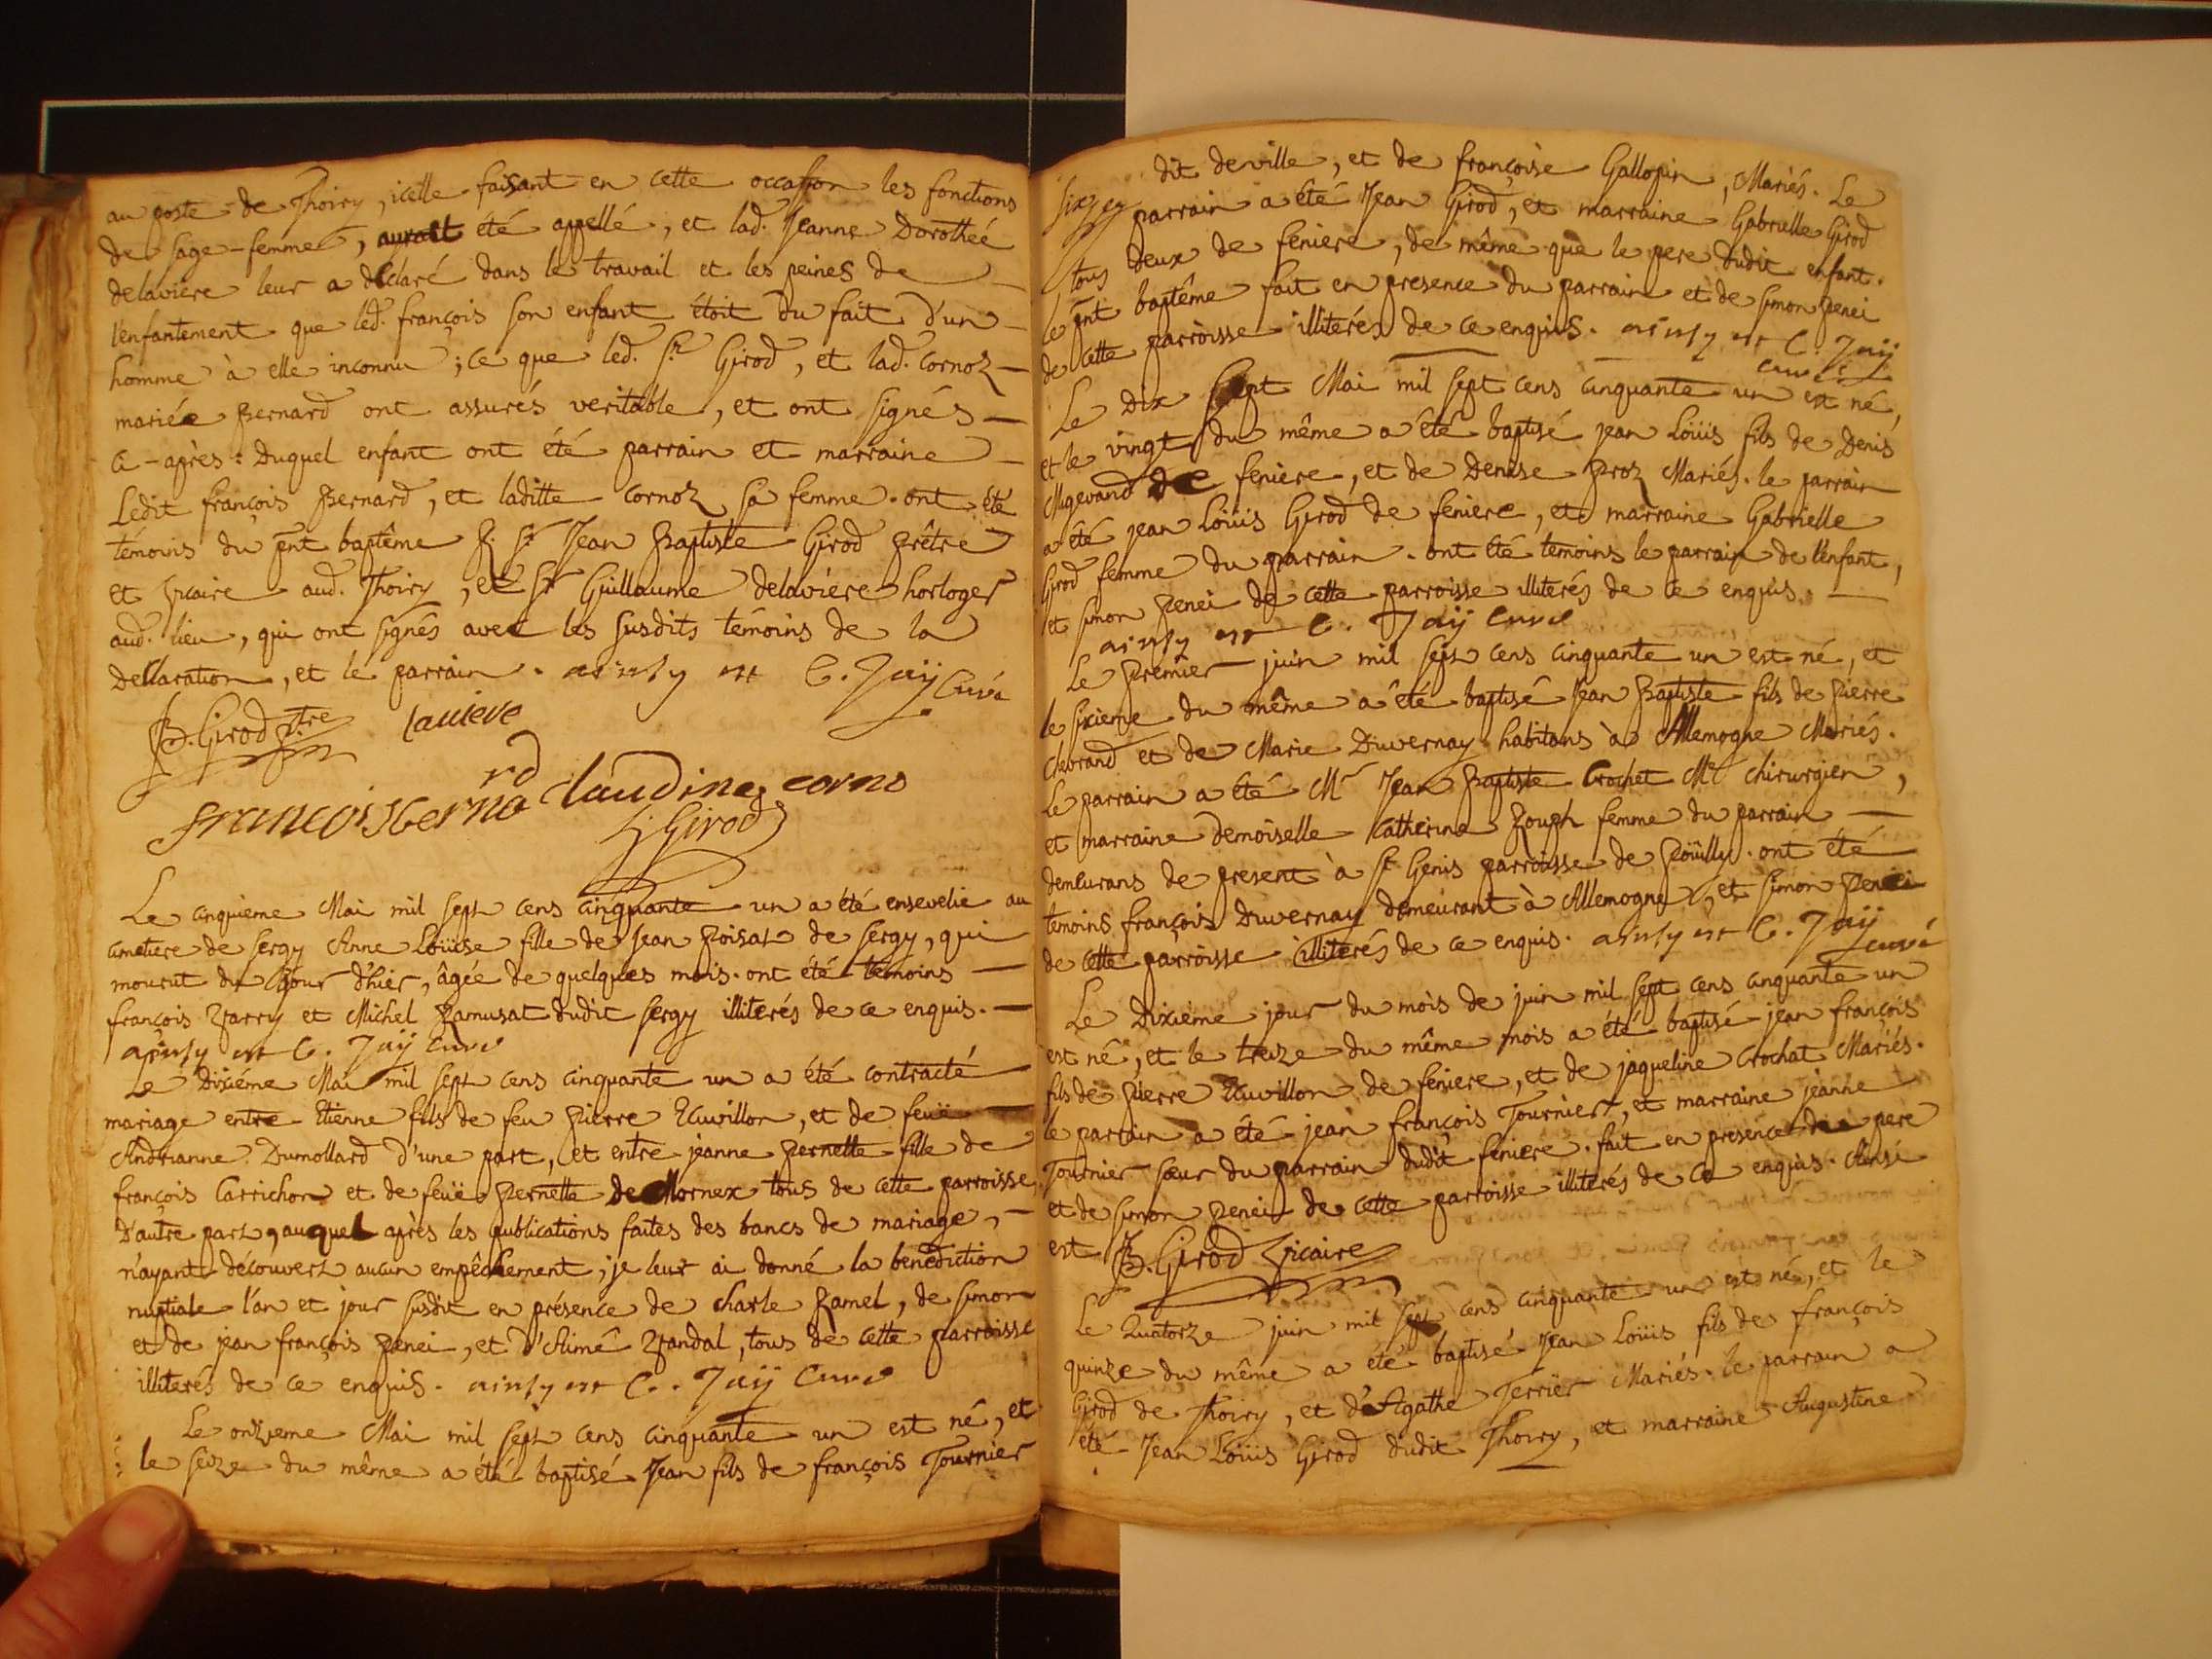 au poste de Thoiry, icelle faisant en cette occasion les fonctions
de sage-femme, aurait été appellé, et lad. Jeanne Dorotheé
delaviere leur a déclaré dans le travail et les peines de
l'enfantement que led. françois son enfant étoit du fait d'un
homme à elle inconnu ; ce que led. Sr. Girod, et lad. Cornoz
mariée Bernard ont assurés veritable, et ont signés
ci-après : Duquel enfant ont été parrain et marraine
Ledit françois Bernard, et laditte Cornoz sa femme. ont été
témoins du pnt baptême R. Sr. Jean Baptiste Girod Prêtre
et Vicaire aud. Thoiry, et Sr Guillaume delaviere horloger
aud. lieu, qui ont signés avec les susdits témoins de la
Declaration, et le parrain. ainsy est C. Jaÿ Curé
JB. Girod Ptre laviere
françois bernard claudine corno
Girod
Le cinquieme Mai mil sept cens cinquante un a été ensevelie au
cimetiere de Sergy Anne Loüise fille de Jean Poisat de Sergy, qui
mourut du jour d'hier, âgée de quelques mois. ont été témoins
françois Parry et Michel Ramusat dudit Sergy illiterés de ce enquis.
ainsy est C. Jaÿ curé
Le Dixiéme Mai mil sept cens cinquante un a été contracté
mariage entre Etienne fils de feu Pierre Euvillon, et de feuë
Andrianne Dumollard d'une part, et entre jeanne Pernette fille de
françois Carrichon et de feuë Pernette de Mornex tous de cette parroisse
D'autre part, auquel après les publications faites des bancs de mariage,
n'ayant découvert aucun empêchement, je leur ai donné la benediction
nuptiale l'an et jour susdit en présence de charle Ramel, de simon
et de jean françois Penei, et d'Aimé Vandal, tous de cette parroisse
illiterés de ce enquis. ainsy est C. Jaÿ Curé
Le onzieme Mai mil sept cens cinquante un est né, et
le seize du même a été baptisé Jean fils de françois Tournier
dit deville, et de françoise Gallopin, Mariés. Le
parrain a été Jean Girod, et marraine Gabrielle Girod
tous deux de feniere, de même que le pere dudit enfant.
Le pnt baptême fait en presence du parrain et de simon Penei
de cette parroisse illiterés de ce enquis. ainsy est C. Jaÿ
curé
Le Dix Sept Mai mil sept cens cinquante un est né,
et le vingt du même a été baptisé jean Loüis fils de Denis
Mugevand de feniere, et de Denise Proz Mariés. le parrain
a été jean Loüis Girod de feniere, et marraine Gabrielle
Girod femme du parrain. ont été temoins le parrain de l'enfant,
et simon Penei de cette parroisse illiterés de ce enquis.
ainsy est C. Jaÿ curé
Le Premier juin mil sept cens cinquante un est né, et
le sixieme du même a été baptisé Jean Baptiste fils de Pierre
Chevrand et de Marie Duvernay habitans à Allemogne Mariés.
Le parrain a été Mr Jean Baptiste Crochet Me chirurgien,
et marraine demoiselle Catherine Rouph femme du parrain
demeurans de present à St Genis parroisse de Poüilly. ont été
temoins françois Duvernay demeurant à Allemogne, et simon Penei
de cette parroisse illiterés de ce enquis. ainsy est C. Jaÿ
curé
Le Dixieme jour du mois de juin mil sept cens cinquante un
est né, et le treize du même mois a été baptisé jean françois
fils de Pierre Euvillon de feniere, et de jaqueline Crochat Mariés.
le parrain a été jean françois Tournier, et marraine jeanne
Tournier soeur du parrain dudit feniere. fait en presence du pere
et de simon Penei de cette parroisse illiterés de ce enquis. Ainsi
est JB. Girod Vicaire
Le Quatorze juin mil sept cens cinquante un est né, et le
quinze du même a été baptisé Jean Loüis fils de françois
Girod de Thoiry, et d'Agathe Terrier Mariés. le parrain a
été Jean Loüis Girod dudit Thoiry, et marraine Augustine